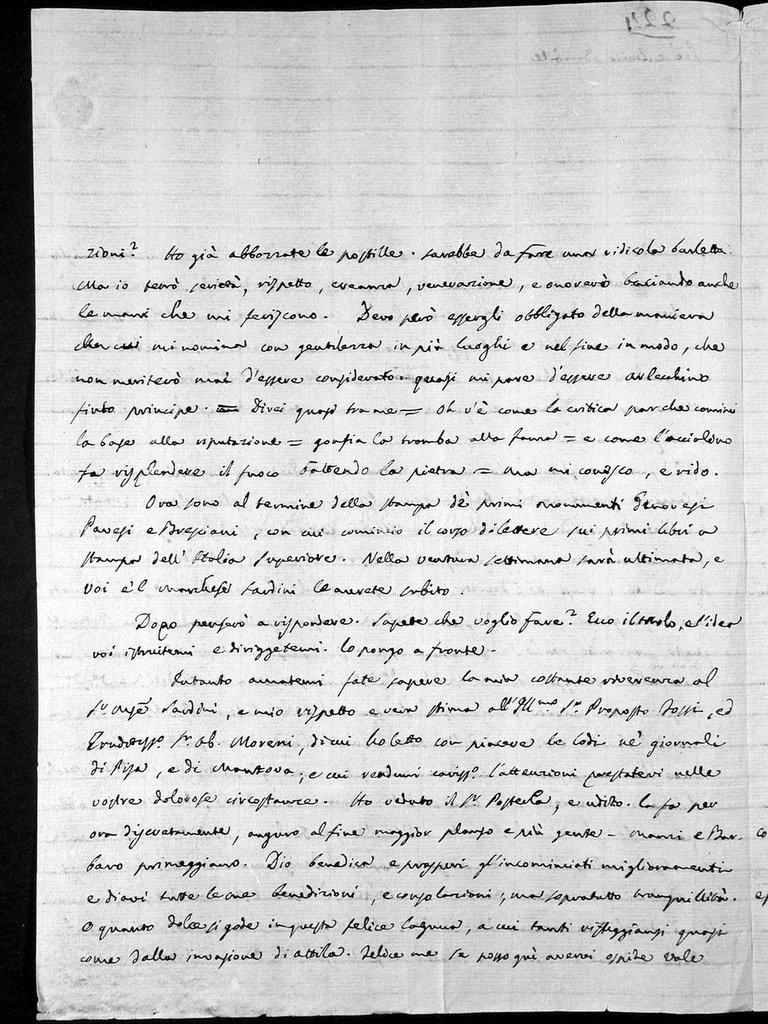 224
zioni? Ho già abbozzate le postille. sarebbe da fare una ridicola burletta.
Ma io terrò serietà, rispetto, creanza, venerazione, e onorerò baciando anche
le mani che mi feriscono. Devo però essergli obbligato della maniera
con cui mi nomina con gentilezza in più luoghi e nel fine in modo, che
non meriterò mai d'essere considerato. quasi mi pare d'essere arlechino
finto principe. = Direi quasi tra me = Oh v'è come la critica par che cominci
la base alla riputazione = gonfia la tromba alla fama = e come l'acciolino
fa risplendere il fuoco battendo la pietra = ma mi conosco, e rido.
Ora sono al termine della stampa de' primi monumenti Genovesi
Pavesi e Bresciani, con cui comincio il corso di lettere sui primi libri a
stampa dell'Italia superiore. Nella ventura settimana sarà ultimata, e
voi e'l marchese Sardini le avrete subito.
Dopo penserò a rispondere. Sapete che voglio fare? Ecco il titolo, e l'idea
voi istruitemi e diriggetemi. lo pongo a fronte.
Intanto amatemi fate sapere la mia costante riverenza al
Sr. March. Sardini, e mio rispetto e vera stima all'Illmo Sr. Proposto Fossi, ed
Eruditiss.º Sr. Ab. Moreni, di cui ho letto con piacere le lodi ne' giornali
di Pisa, e di Mantova; e cui rendimi cariss.º l'attenzioni prestatevi nelle
vostre dolorose circostanze. Ho veduto il Sr. Posterla, e udito. la fa per
ora discretamente, auguro al fine maggior plauso e più gente - Manzi e Bar-
baro primeggiano. Dio benedica e prosperi gl'incominciati miglioramenti
e diavi tutte le sue benedizioni, e consolazioni, ma sopratutto tranquillità.
O quanto dolce si gode in questa felice laguna, a cui tanti rifuggiansi quasi
come dalla invasione di attila. Felice me se posso quì avervi ospite vale